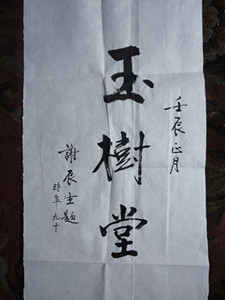 壬辰正月
玉樹堂
謝辰生題
時年九十